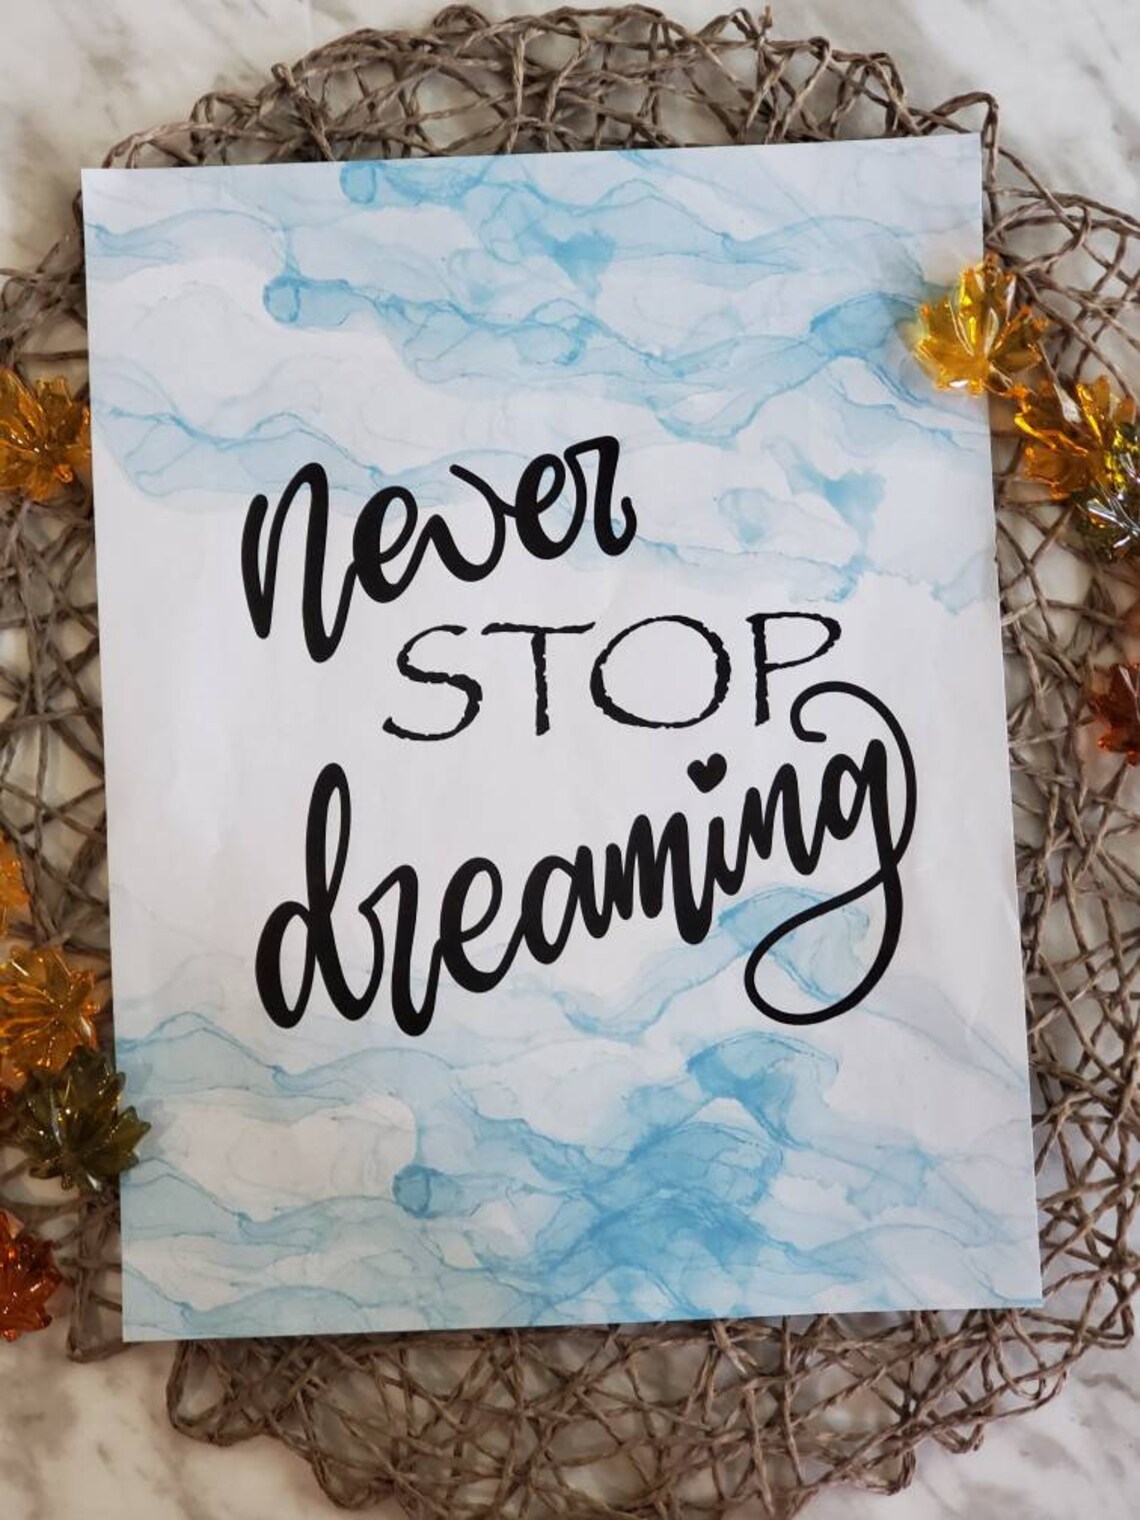 never
STOP
dreaming